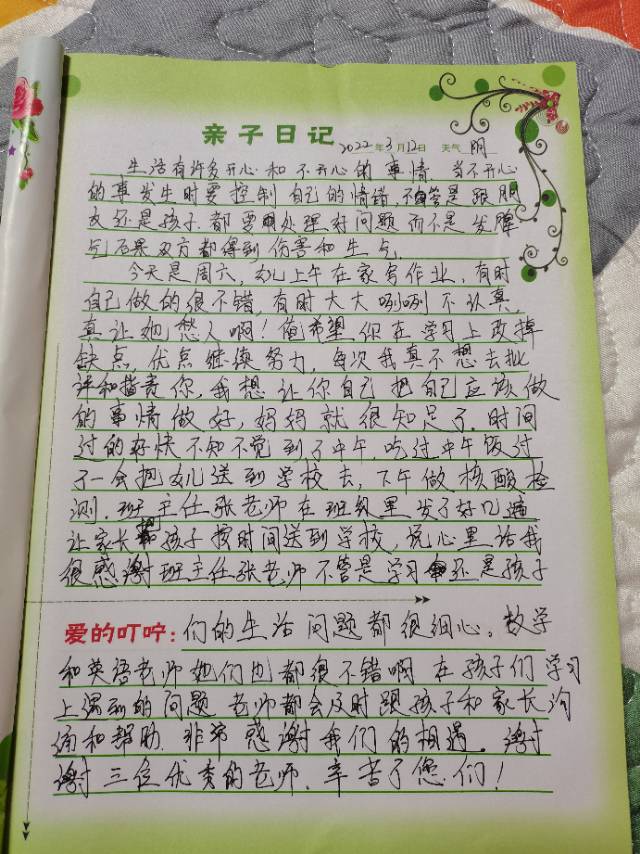 亲子日记 2022年3月12日 天气 阴
生活有许多开心和不开心的事情。当不开心
的事发生时要控制自己的情绪,不管是跟朋
友还是孩子.都要处理好问题而不是发脾
气后果双方都得到伤害和生气.
今天是周六,女儿上午在家写作业,有时
自己做的很不错,有时大大咧咧不认真,
真让她愁人啊!俺希望你在学习上改掉
缺点,优点继续努力,每次我真不想去批
评和指责你,我想让你自己把自己应该做
的事情做好,妈妈就很知足了.时间
过的好快不知不觉到了中午,吃过中午饭过
了一会把女儿送到学校去,下午做核酸检
测.班主任张老师在班级里发了好几遍
让家长把孩子按时间送到学校,说心里话我
很感谢班主任张老师不管是学习还是孩子
爱的叮咛:们的生活问题都很细心。数学
和英语老师她们也都很不错啊在孩子们学习
上遇到的问题老师都会及时跟孩子和家长沟
通和帮助.非常感谢我们的相遇.谢
谢三位优秀的老师.辛苦了您们!